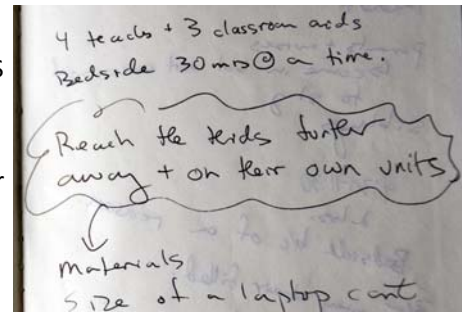 4 teachs + 3 classroom aids
Bedside 30 mns @ a time.
Reach the kids further
away + on their own units
materials
size of a laptop cart